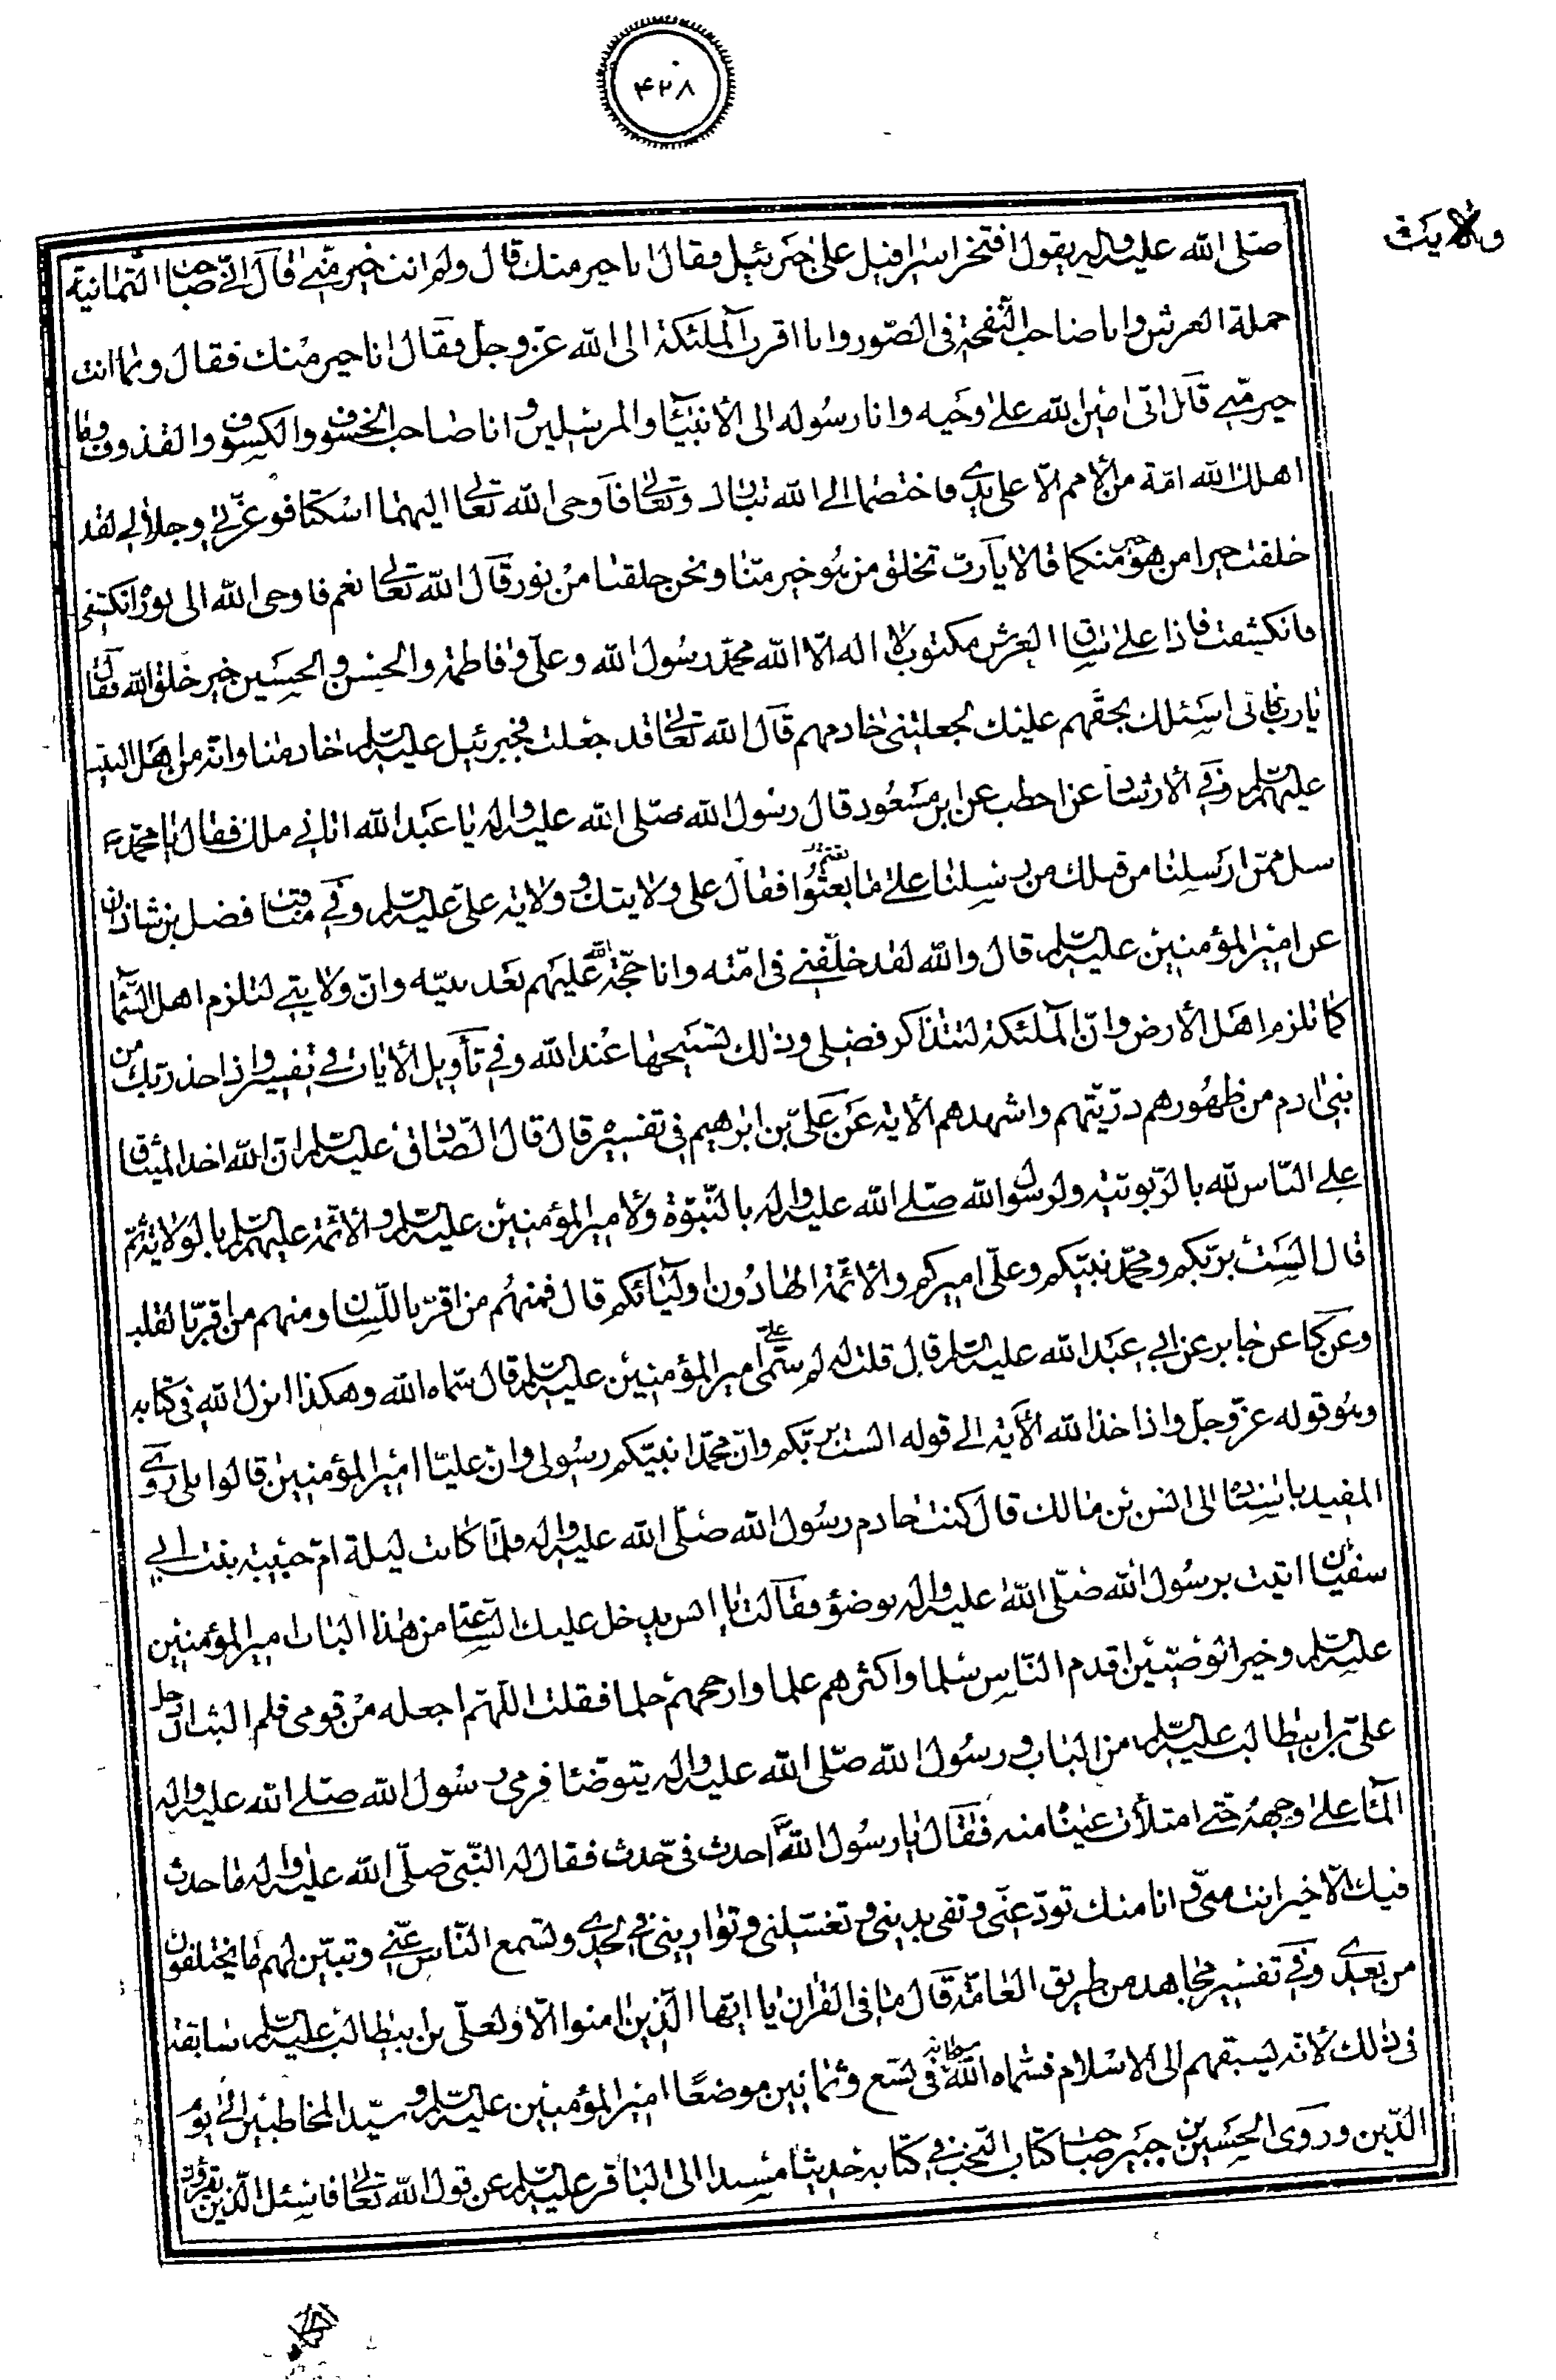 ۴۲۸
ولایت
صلى الله عليه واله يقول افتخر اسرافيل على جبرئيل فقال انا خير منك قال ولم انت خير منى قال انى صاحب الثمانية
حملة العرش وانا صاحب النفخة فى الصور وانا اقرب الملئكة الى الله عز وجل فقال انا خير منك فقال وبما انت
خير منى قال انى امين الله على وحيه وانا رسوله الى الأنبياء والمرسلين وانا صاحب الخسوف والكسوف والقذوف وما
اهلك الله امة من الأمم الا على يدى فاختصما الى الله تبارك وتعالى فاوحى الله تعالى اليهما اسكتا فوعزتى وجلالى لقد
خلقت خيرا ممن هو خير منكما قالا يا رب تخلق من هو خير منا ونحن خلقنا من نور قال الله تعالى نعم فاوحى الله الى نور انكشفى
فانكشفت فاذا على ساق العرش مكتوب لا اله الا الله محمد رسول الله وعلى وفاطمة والحسن والحسين خير خلق الله فقال
يا رب فانى اسئلك بحقهم عليك لجعلتنى خادمهم قال الله تعالى قد جعلت فجبرئيل عليه السلم خادمنا وانه من اهل البيت
عليهم السلم وفى الارشاد عن اخطب عن ابن مسعود قال رسول الله صلى الله عليه واله يا عبد الله اتانى ملك فقال يا محمد
سل من ارسلنا من قبلك من رسلنا على ما بعثوا فقال على ولايتك وولاية على عليه السلم وفى مناقب فضل بن شاذان
عن امير المؤمنين عليه السلم قال والله لقد خلفنى فى امته وانا حجة الله عليهم بعد نبيه وان ولايتى لتلزم اهل السماء
كما تلزم اهل الأرض وان الملئكة لتتذاكر فضلى وذلك تسبيحها عند الله وفى تأويل الأيات فى تفسير واذ اخذ ربك من
بنى ادم من ظهورهم ذريتهم واشهدهم الأية عن على بن ابرهيم فى تفسيره قال قال الصادق عليه السلم ان الله اخذ الميثاق
على الناس لله بالربوبية ولرسول الله صلى الله عليه واله بالنبوة ولأمير المؤمنين عليه السلم والأئمة عليهم السلم بالولاية ثم
قال الست بربكم ومحمد نبيكم وعلى اميركم والأئمة الهادون اوليائكم قال فمنهم من اقر باللسان ومنهم من اقر بالقلب
وعن كا عن جابر عن ابى عبد الله عليه السلم قال قلت له لم سمى على امير المؤمنين عليه السلم قال سماه الله وهكذا انزل الله فى كتابه
وهو قوله عز وجل واذ اخذ الله الأية الى قوله الست بربكم وان محمدا نبيكم رسولى وان عليا امير المؤمنين قالوا بلى روى
المفيد باسناده الى انس بن مالك قال كنت خادم رسول الله صلى الله عليه واله فلما كانت ليلة ام حبيبة بنت ابى
سفيان اتيت برسول الله صلى الله عليه واله بوضؤ فقال يا انس يدخل عليك الساعة من هذا الباب امير المؤمنين
عليه السلم وخير الوصيين اقدم الناس سلما واكثرهم علما وارجحهم حلما فقلت اللهم اجعله من قومى فلم البث ان دخل
على بن ابيطالب عليه السلم من الباب ورسول الله صلى الله عليه واله يتوضئا فرمى رسول الله صلى الله عليه واله
الماء على وجهه حتى امتلأت عيناه منه فقال يا رسول الله احدث فى حدث فقال له النبى صلى الله عليه واله ما حدث
فيك الا خير انت منى وانا منك تودعنى وتفى بدينى وتغسلنى وتوارينى فى لحدى وتسمع الناس عنى وتبين لهم ما يختلفون
من بعدى وفى تفسير مجاهد من طريق العامة قال ما فى القران يا ايها الذين امنوا الا ولعلى بن ابيطالب عليه السلم سابقة
فى ذلك لأنه يسبقهم الى الاسلام فسماه الله سبحانه فى تسع وثمانين موضعا امير المؤمنين عليه السلم وسيد المخاطبين الى يوم
الدين وروى الحسين بن جبير صاحب كتاب النخب فى كتابه حديثا مسندا الى الباقر عليه السلم عن قول الله تعالى فاسئل الذين يقرؤن